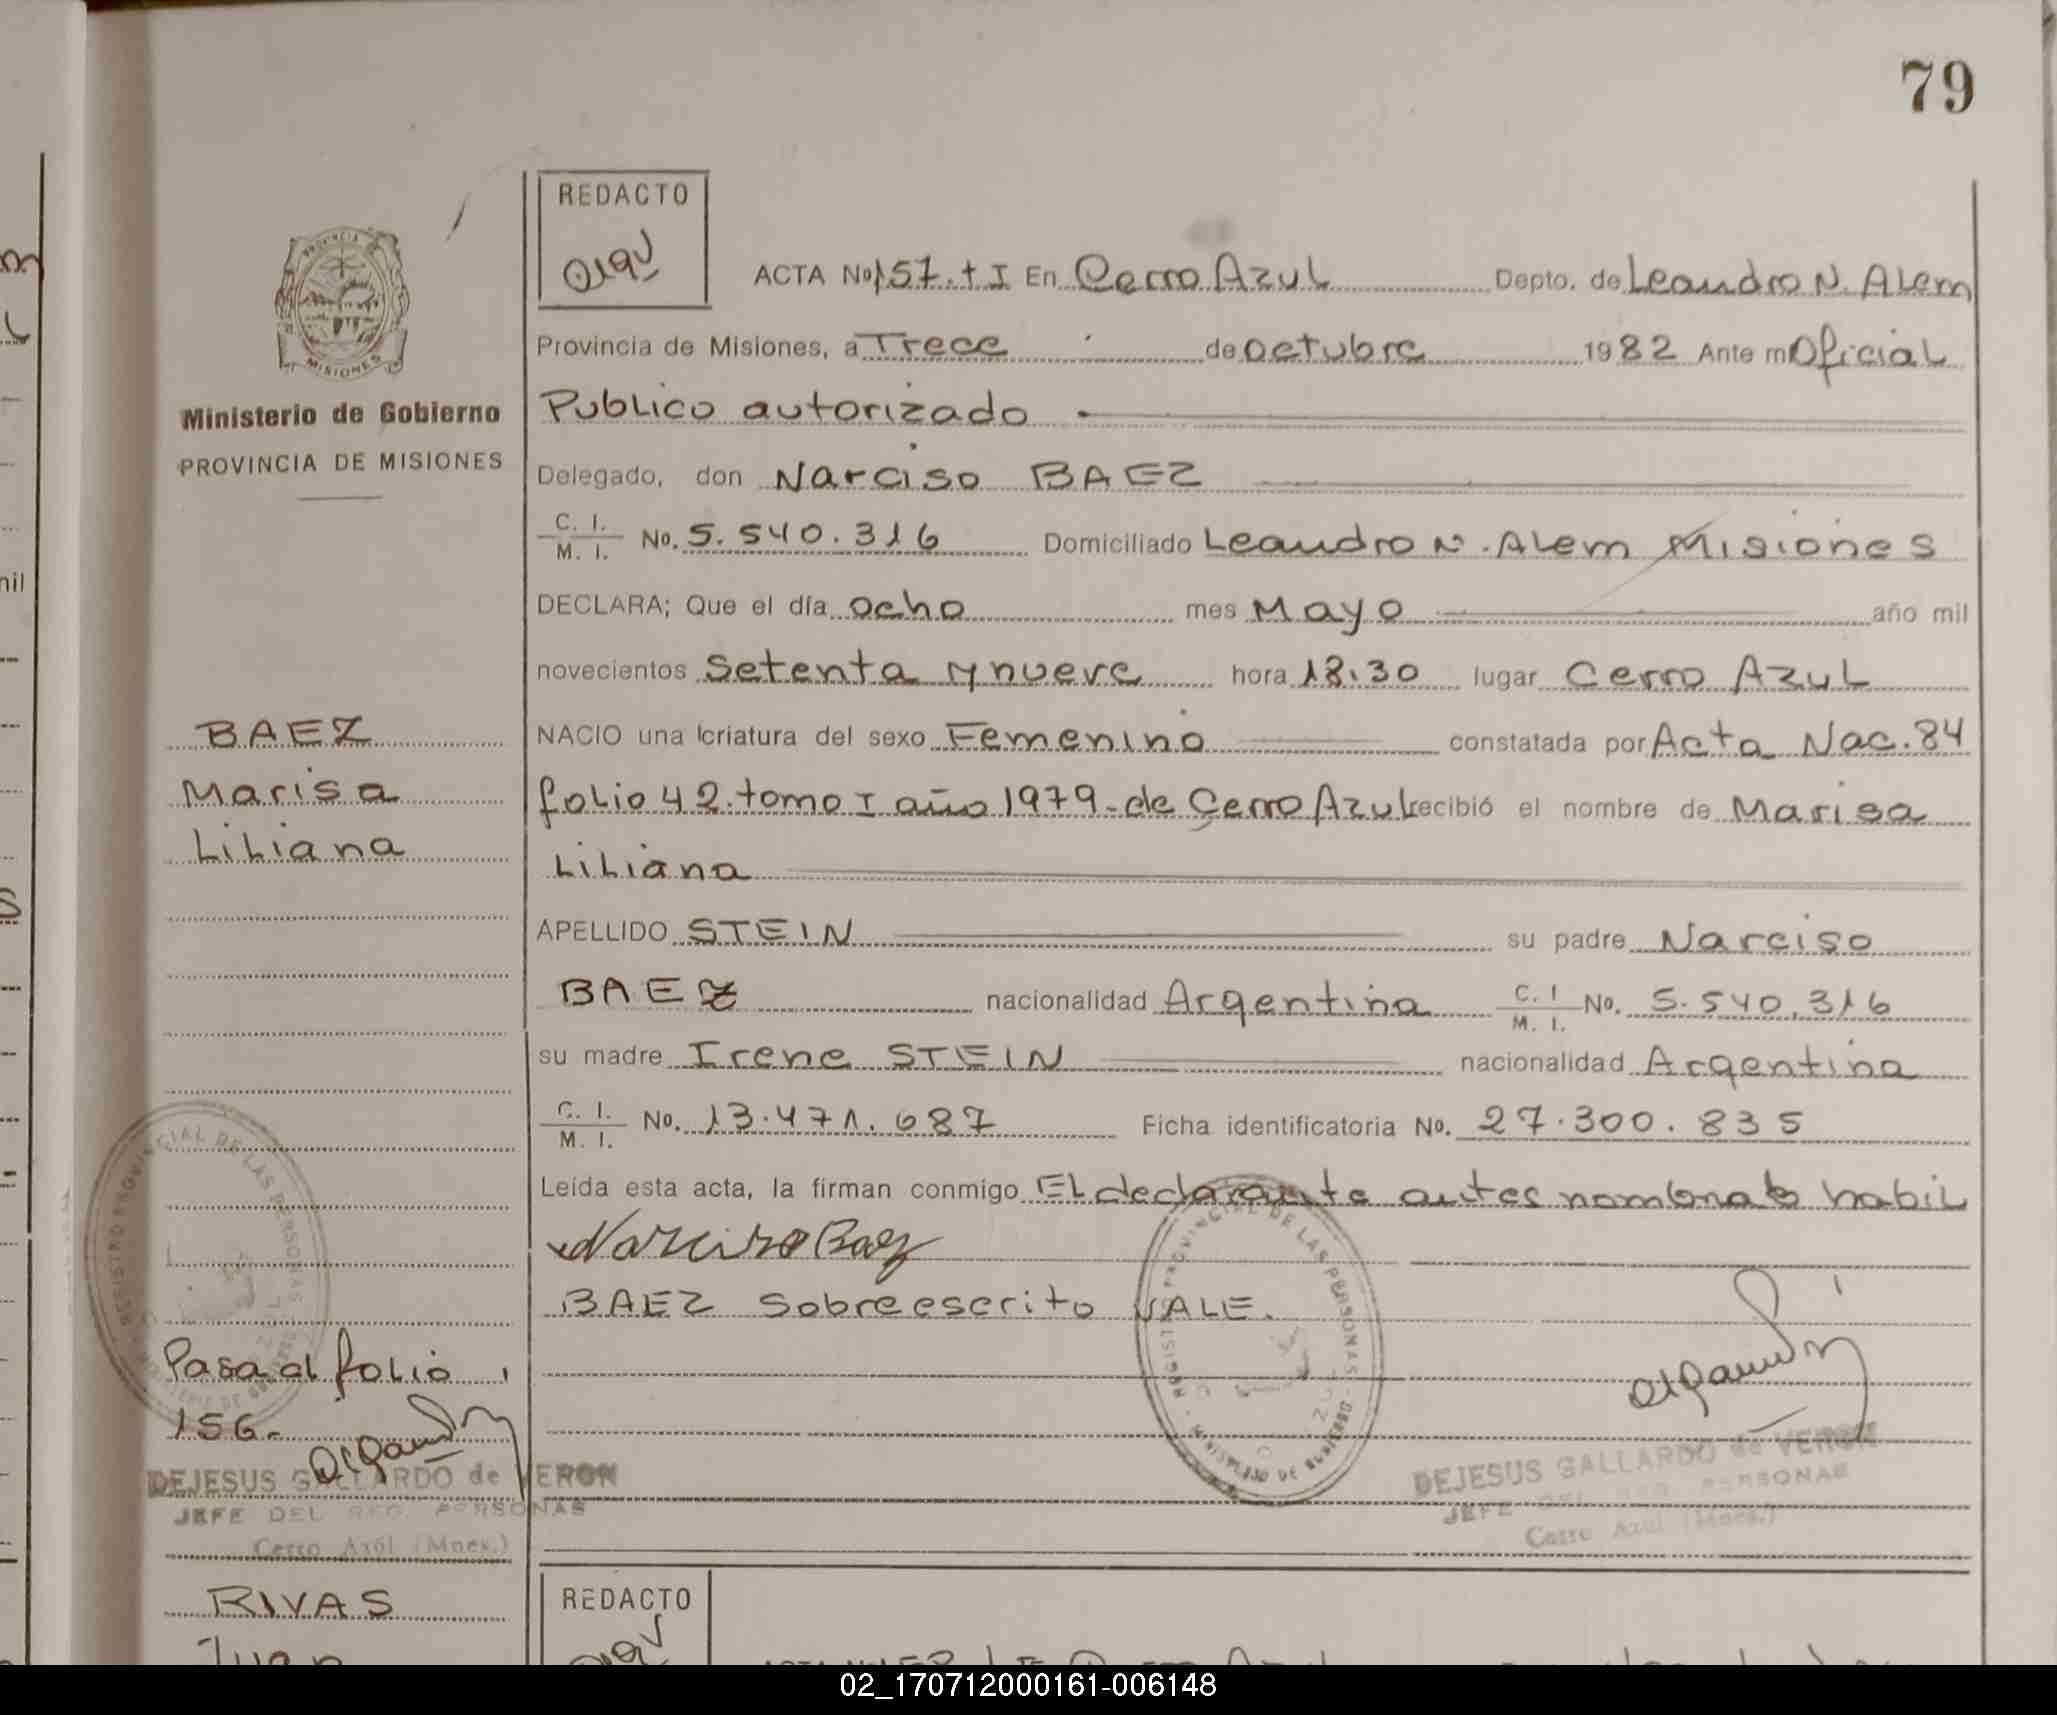 79
REDACTO
ACTA No 157. t I En Cerro Azul Depto. de Leandro N. Alem
Provincia de Misiones, a Trece de octubre 1982 Ante m Oficial
Publico autorizado
Delegado, don Narciso BAEZ
C. I. / M. I. No. 5.540.316 Domiciliado Leandro N. Alem Misiones
DECLARA; Que el día ocho mes Mayo año mil
novecientos setenta y nueve hora 18.30 lugar Cerro Azul
NACIO una criatura del sexo Femenino constatada por Acta Nac. 84
folio 42. tomo I año 1979 - de Cerro Azul recibió el nombre de Marisa
Liliana
APELLIDO STEIN su padre Narciso
BAEZ nacionalidad Argentina C. I / M. I. No. 5.540.316
su madre Irene STEIN nacionalidad Argentina
C. I. / M. I. No. 13.471.687 Ficha identificatoria No. 27.300.835
Leída esta acta, la firman conmigo El declarante antes nombrado habil
Narciso Baez
BAEZ Sobreescrito VALE.
DEJESUS GALLARDO de VERON
JEFE DEL REG. PERSONAS
Cerro Azul (Mnes.)
PROVINCIA DE
MISIONES
Ministerio de Gobierno
PROVINCIA DE MISIONES
BAEZ
Marisa
Liliana
Pasa al folio
156.
DEJESUS GALLARDO de VERON
JEFE DEL REG. PERSONAS
Cerro Azúl (Mnes.)
REGISTRO PROVINCIAL DE LAS PERSONAS
MINISTERIO DE GOBIERNO
REGISTRO PROVINCIAL DE LAS PERSONAS
MINISTERIO DE GOBIERNO
RIVAS
Juan
REDACTO
nil
02_170712000161-006148